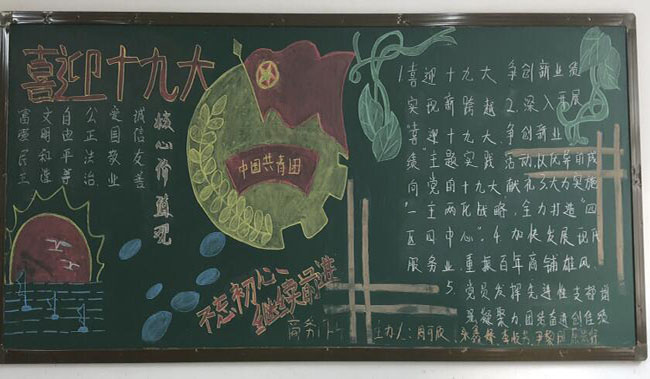 喜迎十九大
富强民主
文明和谐
自由平等
公正法治
爱国敬业
诚信友善
核心价值观
中国共青团
不忘初心
继续前进
1喜迎十九大 争创新业绩
实现新跨越 2.深入开展
“喜迎十九大、争创新业
绩”主题实践活动
向党的十九大献礼 3.大力实施
“一主两化战略,全力打造“四
区四中心”.4.加快发展现代
服务业,重振百年商铺雄风.
5.党员发挥先进性支持增
强凝聚力.团结奋进创佳绩